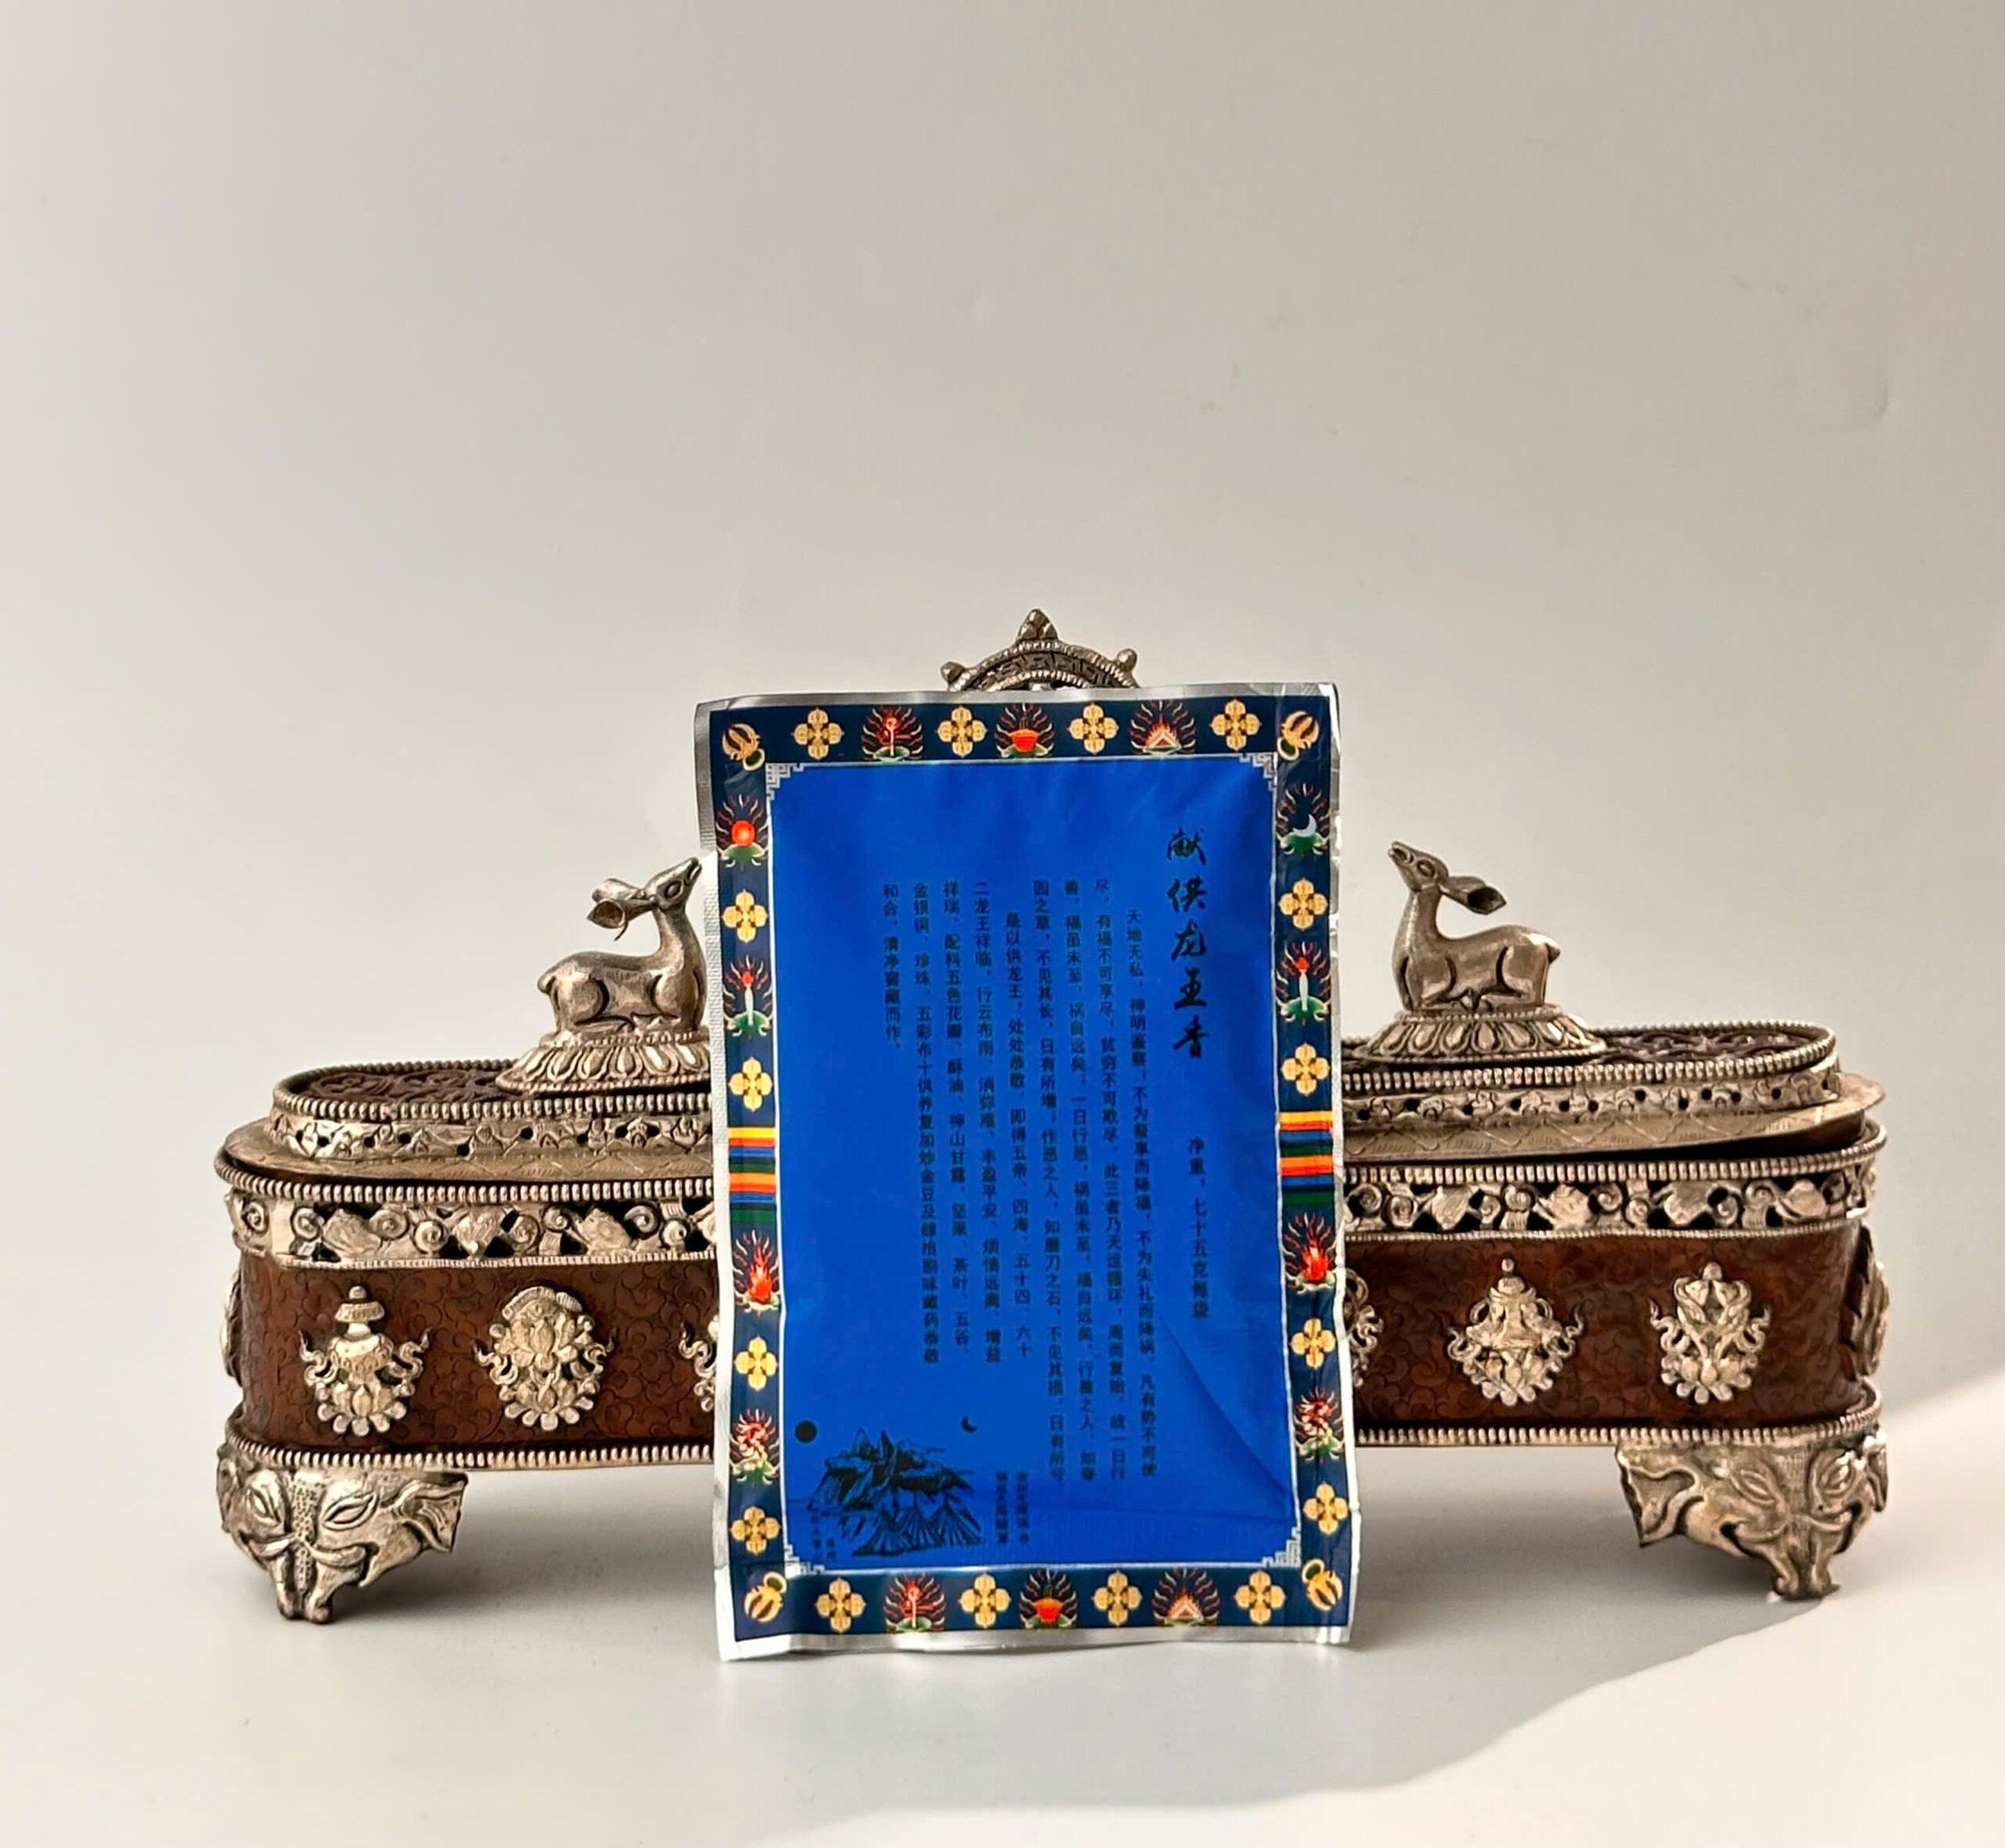 献供龙王香
净重，七十五克每袋
天地无私，神明鉴察，不为祭享而降福，不为失礼而降祸，凡有势不可使
尽，有福不可享尽，贫穷不可欺尽，此三者乃天运循环，周而复始，故一日行
善，福虽未至，祸自远矣，一日行恶，祸虽未至，福自远矣，行善之人，如春
园之草，不见其长，日有所增，作恶之人，如磨刀之石，不见其损，日有所亏
是以供龙王，处处恭敬，即得五帝、四海、五十四、六十
二龙王祥临，行云布雨，消弥难、丰盈平安、烦恼远离、增益
祥瑞，配料五色花瓣、酥油、神山甘露、坚果、茶叶、五谷、
金银铜、珍珠、五彩布十供养复加炒金豆及肆拾捌味藏药恭敬
和合，清净窖藏而作。